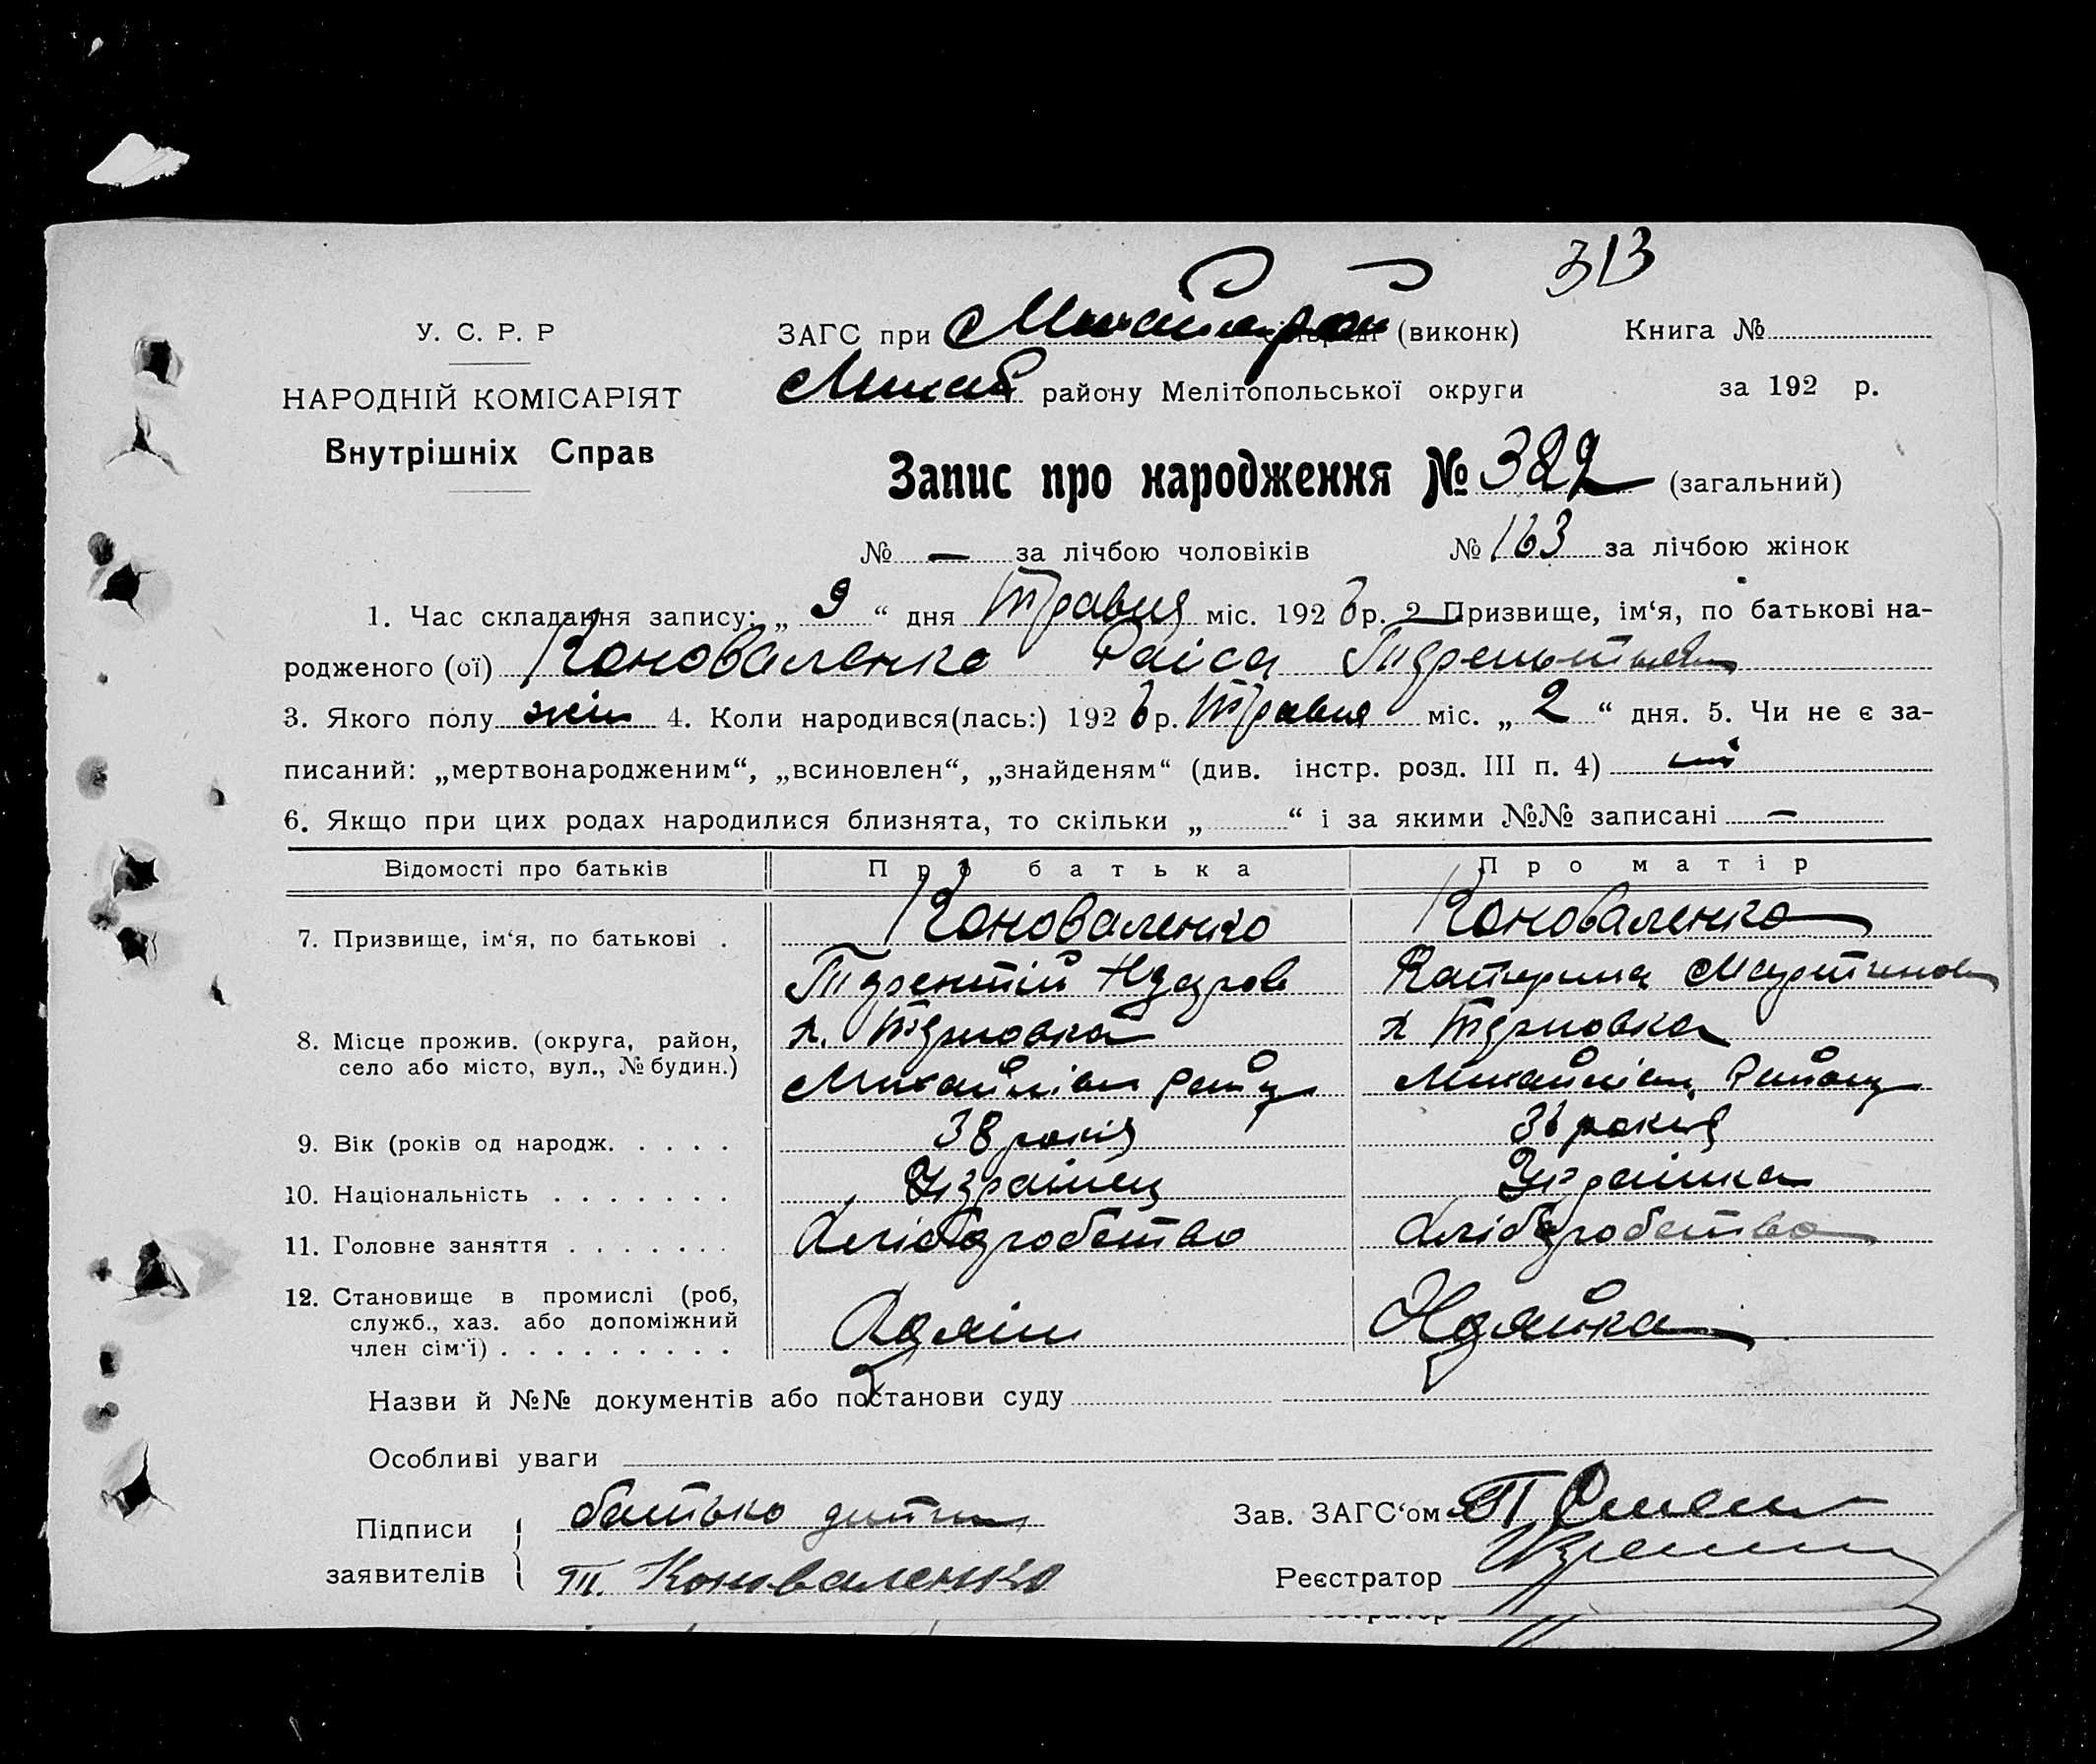 313
У. С. Р. Р
ЗАГС при (виконк) Книга №
НАРОДНІЙ КОМІСАРІЯТ
Михай району Мелітопольської округи за 192 р.
Внутрішніх Справ
Запис про народження № 382 (загальний)
№ — за лічбою чоловіків № 163 за лічбою жінок
1. Час складання запису: „ 9 “ дня Травня міс. 1926 р. 2 Призвище, ім‘я, по батькові на-
родженого (ої) Коноваленко Раіса
3. Якого полу жін 4. Коли народився(лась:) 1926 р. Травня міс. „ 2 “ дня. 5. Чи не є за-
писаний: „мертвонародженим“, „всиновлен“, „знайденям“ (див. інстр. розд. III п. 4) ні
6. Якщо при цих родах народилися близнята, то скільки „ “ і за якими №№ записані —
Відомості про батьків Про батька Про матір
7. Призвище, ім‘я, по батькові . Коноваленко Коноваленко
Терентій Катерина Мартинов
8. Місце прожив. (округа, район, х. Терновка х Терновка
село або місто, вул., № будин.) Михайлівськ Району
9. Вік (років од народж. . . . . 38 років 36 років
10. Національність . . . . . . . Українець Українка
11. Головне заняття . . . . . . . Хліборобство Хліборобство
12. Становище в промислі (роб,
служб., хаз. або допоміжний Хазяїн Хазяйка
член сім‘ї) . . . . . . . . .
Назви й №№ документів або постанови суду
Особливі уваги
Підписи батько дитини Зав. ЗАГС‘ом
заявителів Т. Коноваленко Реєстратор